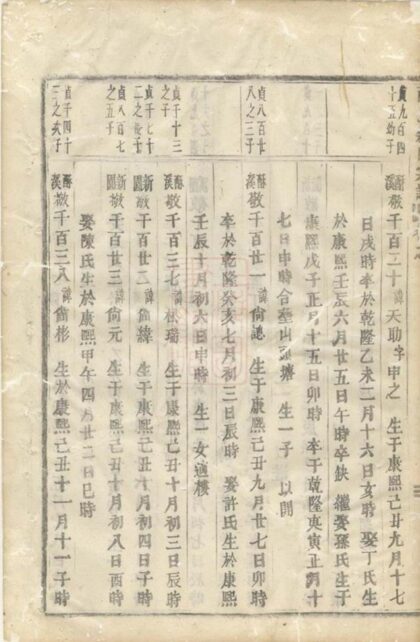 貞九百四
十五幼子
醅溪 敬千百二十 諱天助字甲之 生于康熙己丑九月十七
日戌時卒於乾隆乙未二月十六日亥時 娶丁氏生
於康熙壬辰六月廿五日午時卒缺 繼娶孫氏生于
康熙戊子正月十五日卯時 卒于乾隆庚寅正月十
七日申時合墓山頭塘 生一子 以開
貞八百廿
八之三子
敬千百廿一 諱尙 生于康熙己丑九月廿七日卯時
卒於乾隆癸亥七月初三日辰時 娶許氏生於康熙
壬辰十月初六日申時 生一女適樓
貞千十三
之子
醅溪 敬千百三七 諱松瑞 生于康熙己丑十月初三日辰時
貞千七十
二之子
新 敬千百廿二 諱尙 生于康熙己丑十月初四日子時
貞八百七
之五子
新 敬千百廿三 諱尙元 生于康熙己丑十月初八日酉時
娶陳氏生於康熙甲午四月廿二日巳時
貞千四十
三之次子
醅溪 敬千百三八 諱尙彬 生於康熙己丑十一月十一子時